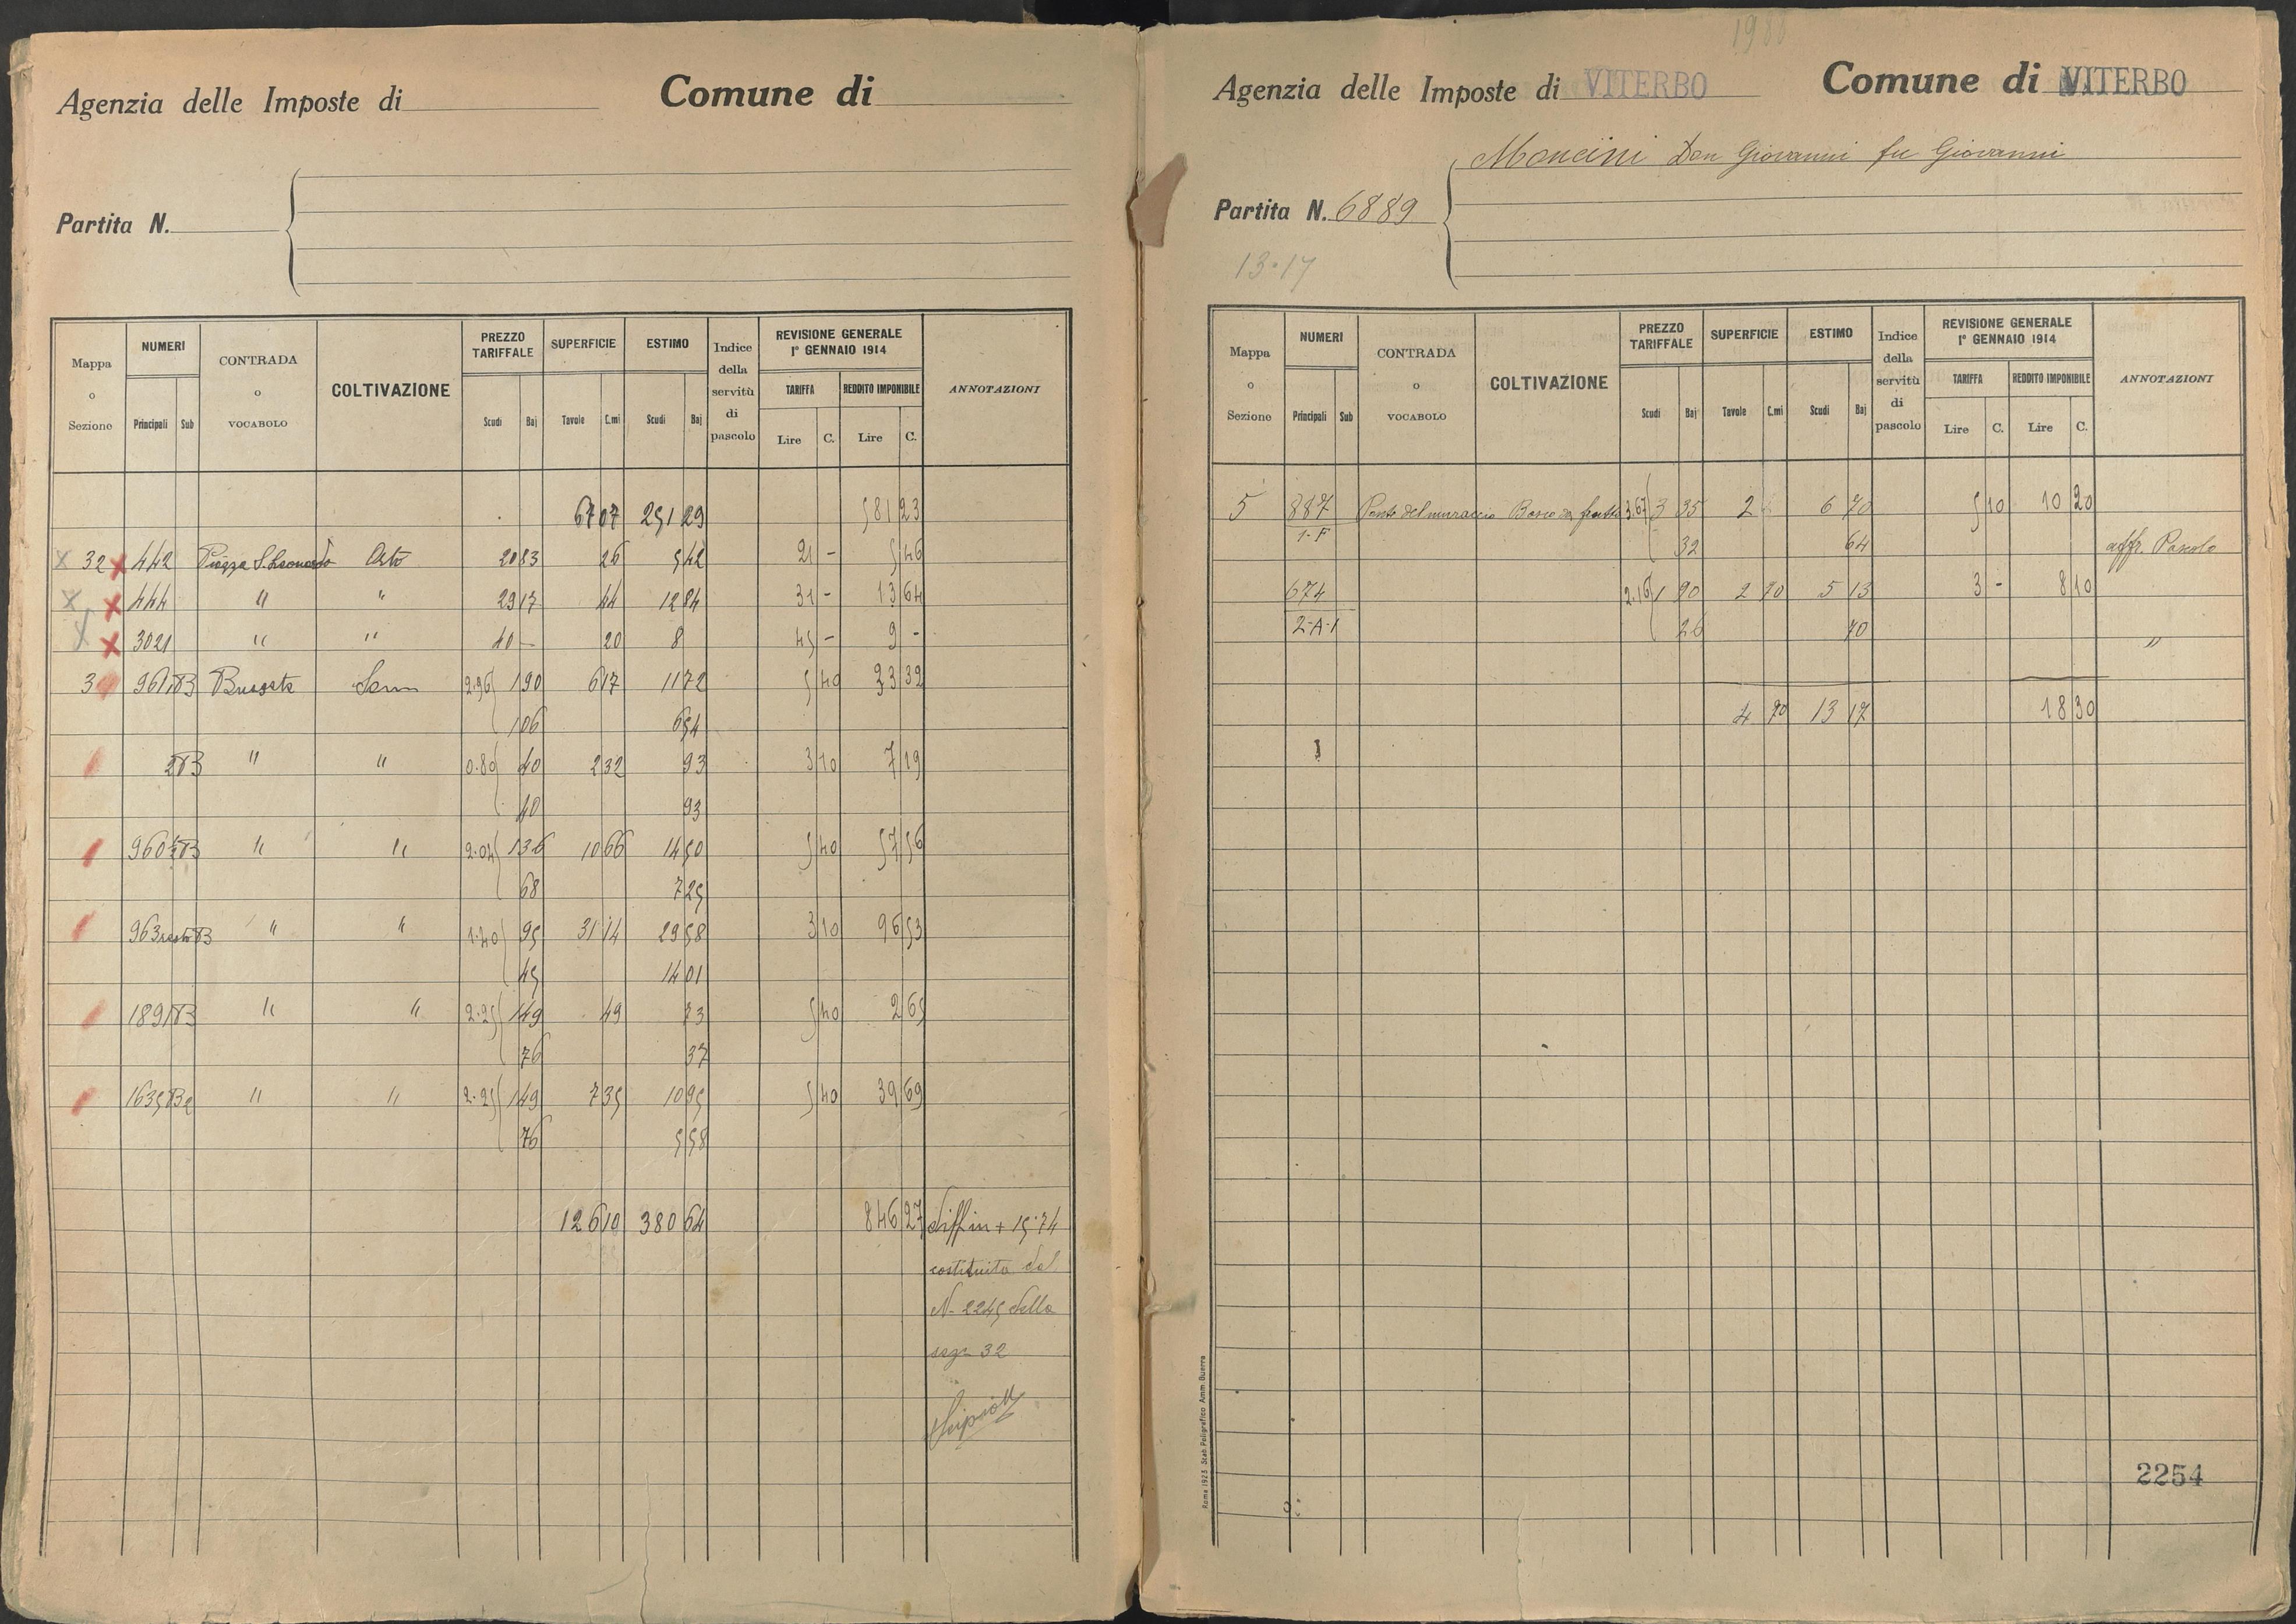 Agenzia delle Imposte di
Comune di
Partita N.
Mappa o Sezione
NUMERI
Principali Sub
CONTRADA o VOCABOLO
COLTIVAZIONE
PREZZO TARIFFALE
Scudi Baj
SUPERFICIE
Tavole C.mi
ESTIMO
Scudi Baj
Indice della servitù di pascolo
REVISIONE GENERALE
1° GENNAIO 1914
TARIFFA
Lire C.
REDDITO IMPONIBILE
Lire C.
ANNOTAZIONI
67 07 251 29 581 23
32 442 Piazza S. Leonardo Orto 20 83 26 5 42 21 - 5 46
444 " " 29 17 44 12 84 31 - 13 64
3021 " " 40 - 20 8 45 - 9 -
3 961 Sem 2.96 1 90 6 17 11 72 5 40 33 32
1 06 6 54
" " 0.80 40 2 32 93 3 10 7 19
40 93
960 " " 2.04 1 36 10 66 14 50 5 40 57 56
68 7 25
963 resto " " 1.40 95 31 14 29 58 3 10 96 53
45 14 01
1891 " " 2.25 1 49 49 73 5 40 2 65
76 37
1635 " " 2.25 1 49 7 35 10 95 5 40 39 69
76 5 58
126 10 380 64 846 27 Diff in + 15.74
costituita dal
N. 2245 della
sez. 32
Agenzia delle Imposte di VITERBO
Comune di VITERBO
Partita N. 6889
Moncini Don Giovanni fu Giovanni
13.17
Mappa o Sezione
NUMERI
Principali Sub
CONTRADA o VOCABOLO
COLTIVAZIONE
PREZZO TARIFFALE
Scudi Baj
SUPERFICIE
Tavole C.mi
ESTIMO
Scudi Baj
Indice della servitù di pascolo
REVISIONE GENERALE
1° GENNAIO 1914
TARIFFA
Lire C.
REDDITO IMPONIBILE
Lire C.
ANNOTAZIONI
5 887 Ponte del muraccio Bosco da frutto 3.67 3 35 2 6 70 5 10 10 20
1-F 32 64 affr. Pascolo
674 2.16 1 90 2 70 5 13 3 - 8 10
2-A-1 26 70 "
4 70 13 17 18 30
Roma 1923 Stab. Poligrafico Amm. Guerra
2254